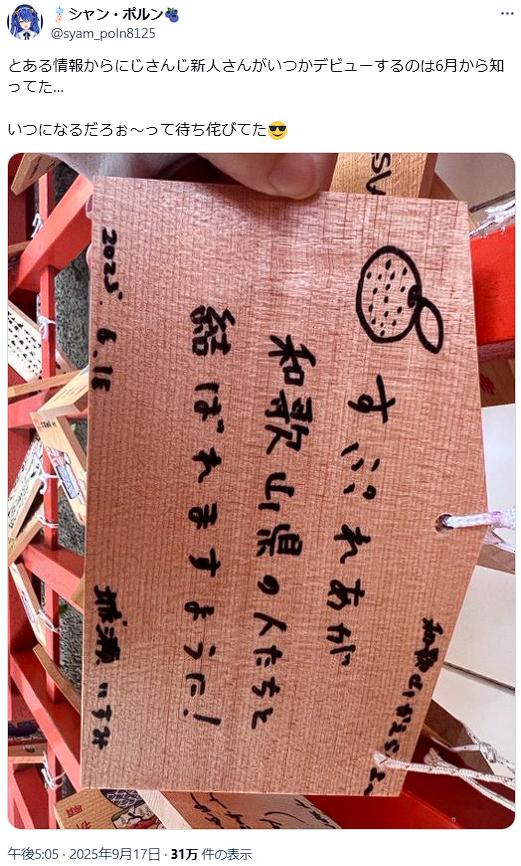 シャン・ポルン
@syam_poln8125
とある情報からにじさんじ新人さんがいつかデビューするのは6月から知
ってた...
いつになるだろぉ～って待ち侘びてた😎
すぷれあが
和歌山県の人たちと
結ばれますように!
2025.6.18
城瀬いすみ
和歌山かえら
午後5:05 · 2025年9月17日 · 31万 件の表示